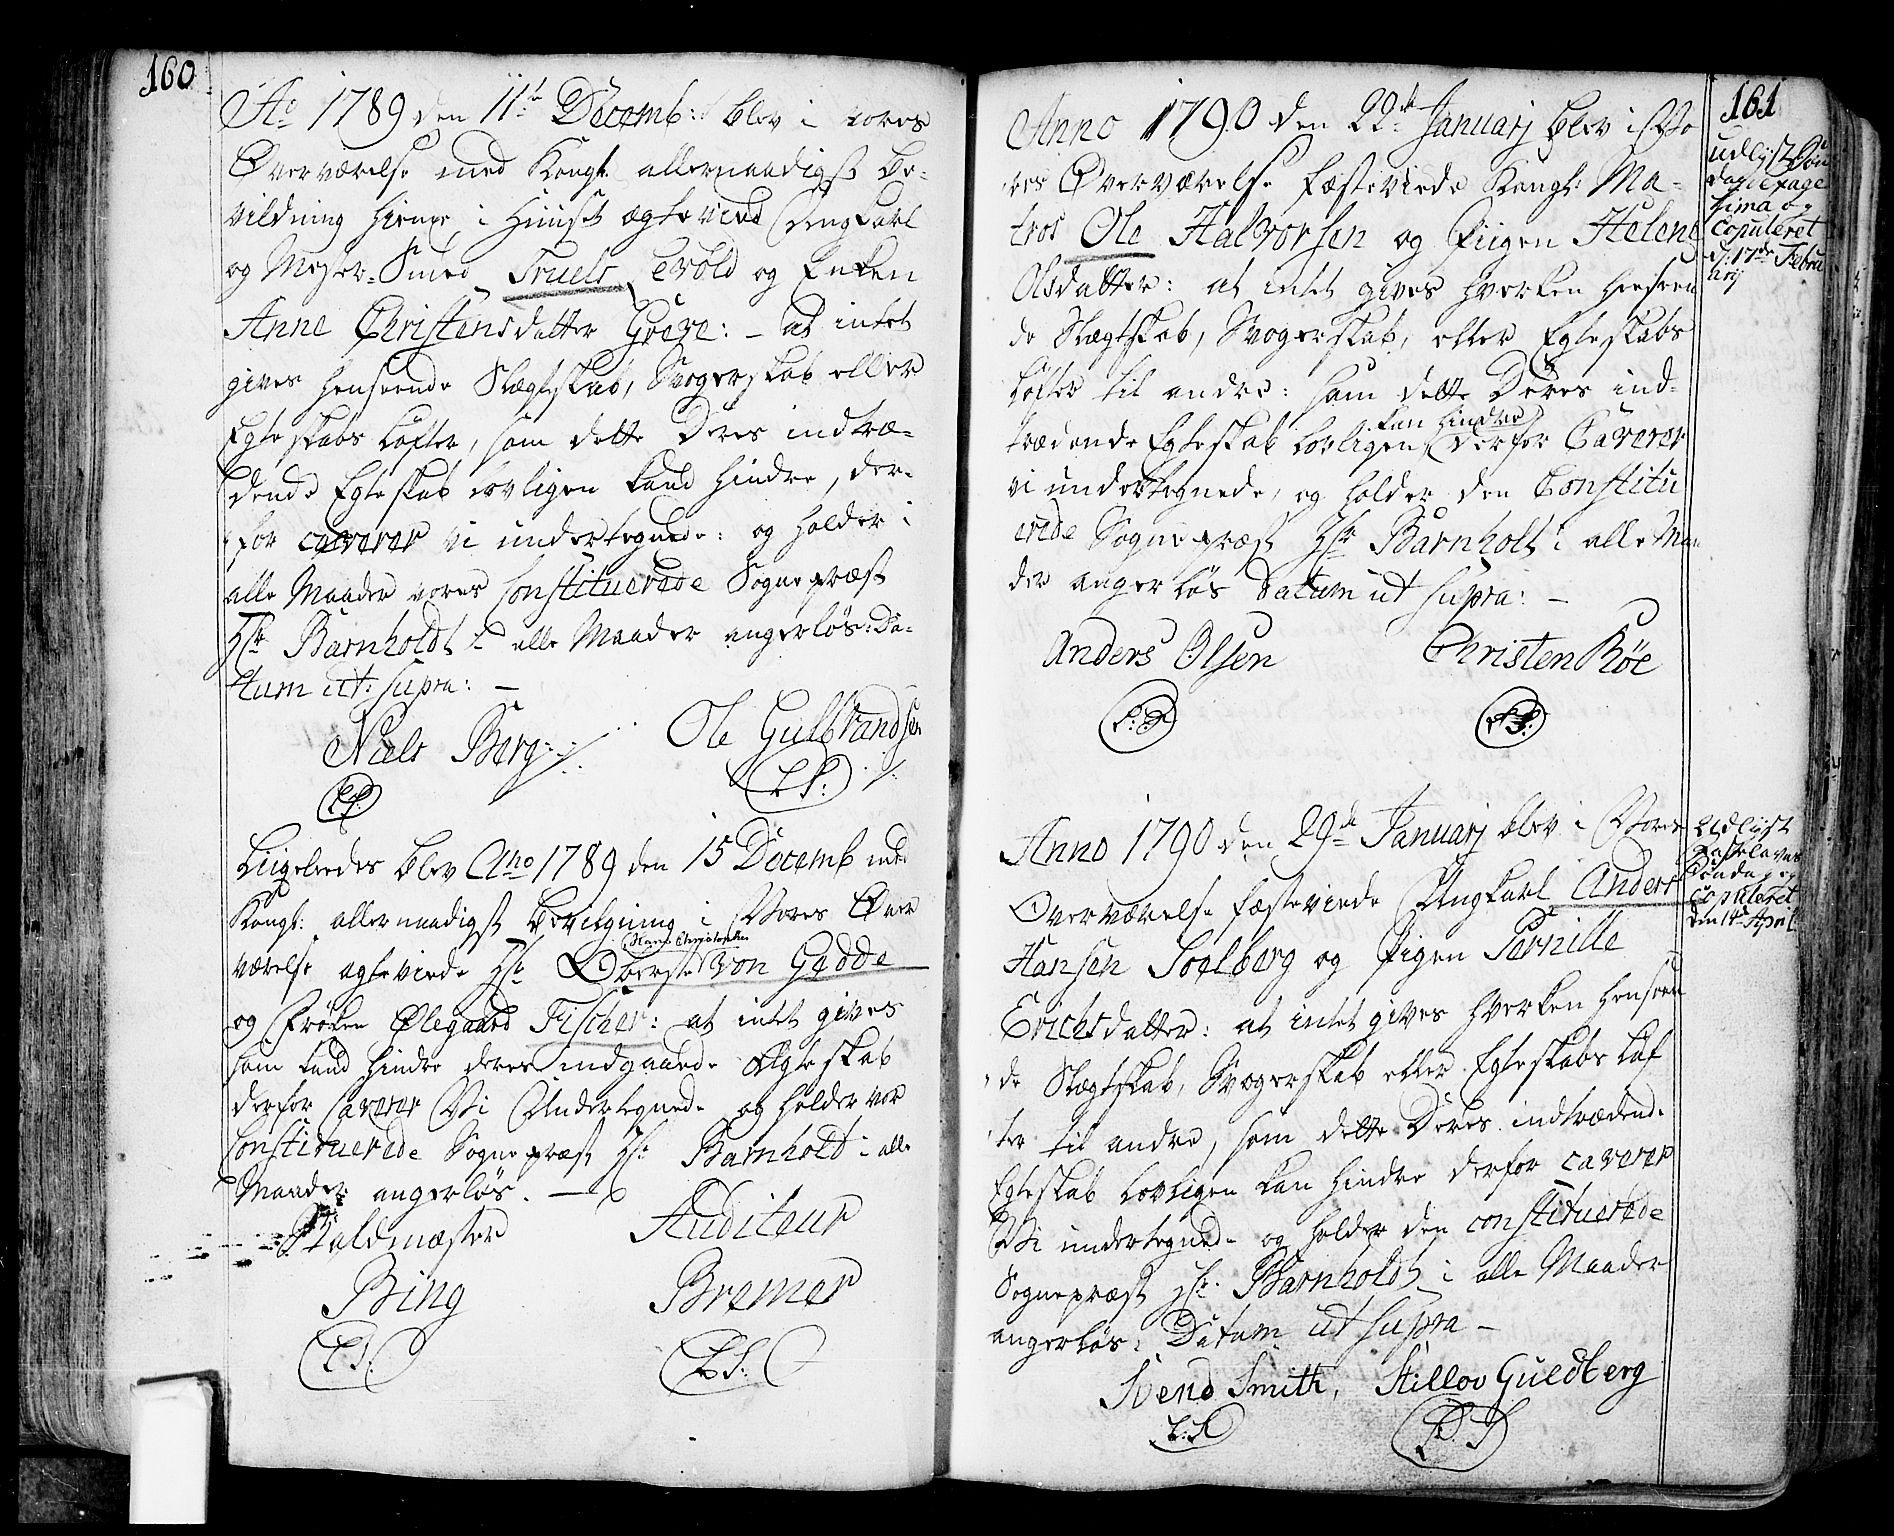 160
Ao 1789 den 11te Decemb: blev i vores
Overværelse med Kongl. allernaadigst Be-
vildning hieme i Huuset ægteviet Ungkarl
og Mester-Smed Truels Evold og Enken
Anne Christensdatter Greve: - at intet
gives henseende Slægtskab, Svogerskab eller
Egteskabs Løfter, som dette Deres indtræ-
dende Egteskab lovligen kand hindre, der-
for caverer vi undertegnede: og holder i
alle Maader vores Constituerede Sognepræst
Hr Barnholdt i alle Maader angerløs: Da-
tum ut supra: -
Niels Berg
Ole Gulbrandsen
LS.
L S:
Ligeledes blev Ano 1789 den 15 Decemb med
Kongl: allernaadigst Bevilgning i Vores Over
værelse ægteviede Hr. Oberste Hans Christopher von Gedde
og Frøken Ølegaard Fischer: at intet gives
som kand hindre deres indgaaede Ægteskab
derfor Caverer Vi Undertegnede og holder vor
Constituerede Sognepræst Hr. Barnholdt i alle
Maader angerløs. -
Staldmæster
Auditeur
Bing
Bremer
LS.
LS.
161
Anno 1790 den 22de Januarj blev i Vo
res Overværelse fæsteviede Kongl: Ma-
tros Ole Halvorsen og Piigen Helene
Olsdatter: at intet gives hverken henseen
de Slægtskab, Svogerskab, eller Egteskabs
Løfter til andre: som dette Deres ind-
trædende Egteskab lovligen kan hindre derfor Caverer
vi undertegnede, og holder den Constitu
erede Sognepræst Hr Barnholt i alle Maa
der angerløs Datum ut supra: -
Anders Olsen
Christen Röe
L:S
L S:
udlyst Søn
dag Sexage
sima og
Copuleret
d: 17de Febru
arij
Anno 1790 den 29de Januarj blev i Vores
Overværelse fæsteviede Ungkarl Anders
Hansen Soelberg og Pigen Pernille
Erichsdatter: at intet gives hverken henseen
de Slægtskab, Svogerskab eller Egteskabs Løf
ter til andre, som dette Deres indtrædende
Egteskab lovligen kan hindre derfor caverer
Vi undertegnede og holder den constituerede
Sognepræst Hr. Barnholdt i alle Maader
angerløs: Datum ut supra -
Svend Smith, Stillov Guldberg
L.S
L. S
Udlyst
Fastelavns
Søndag og
Copuleret
den 14 April